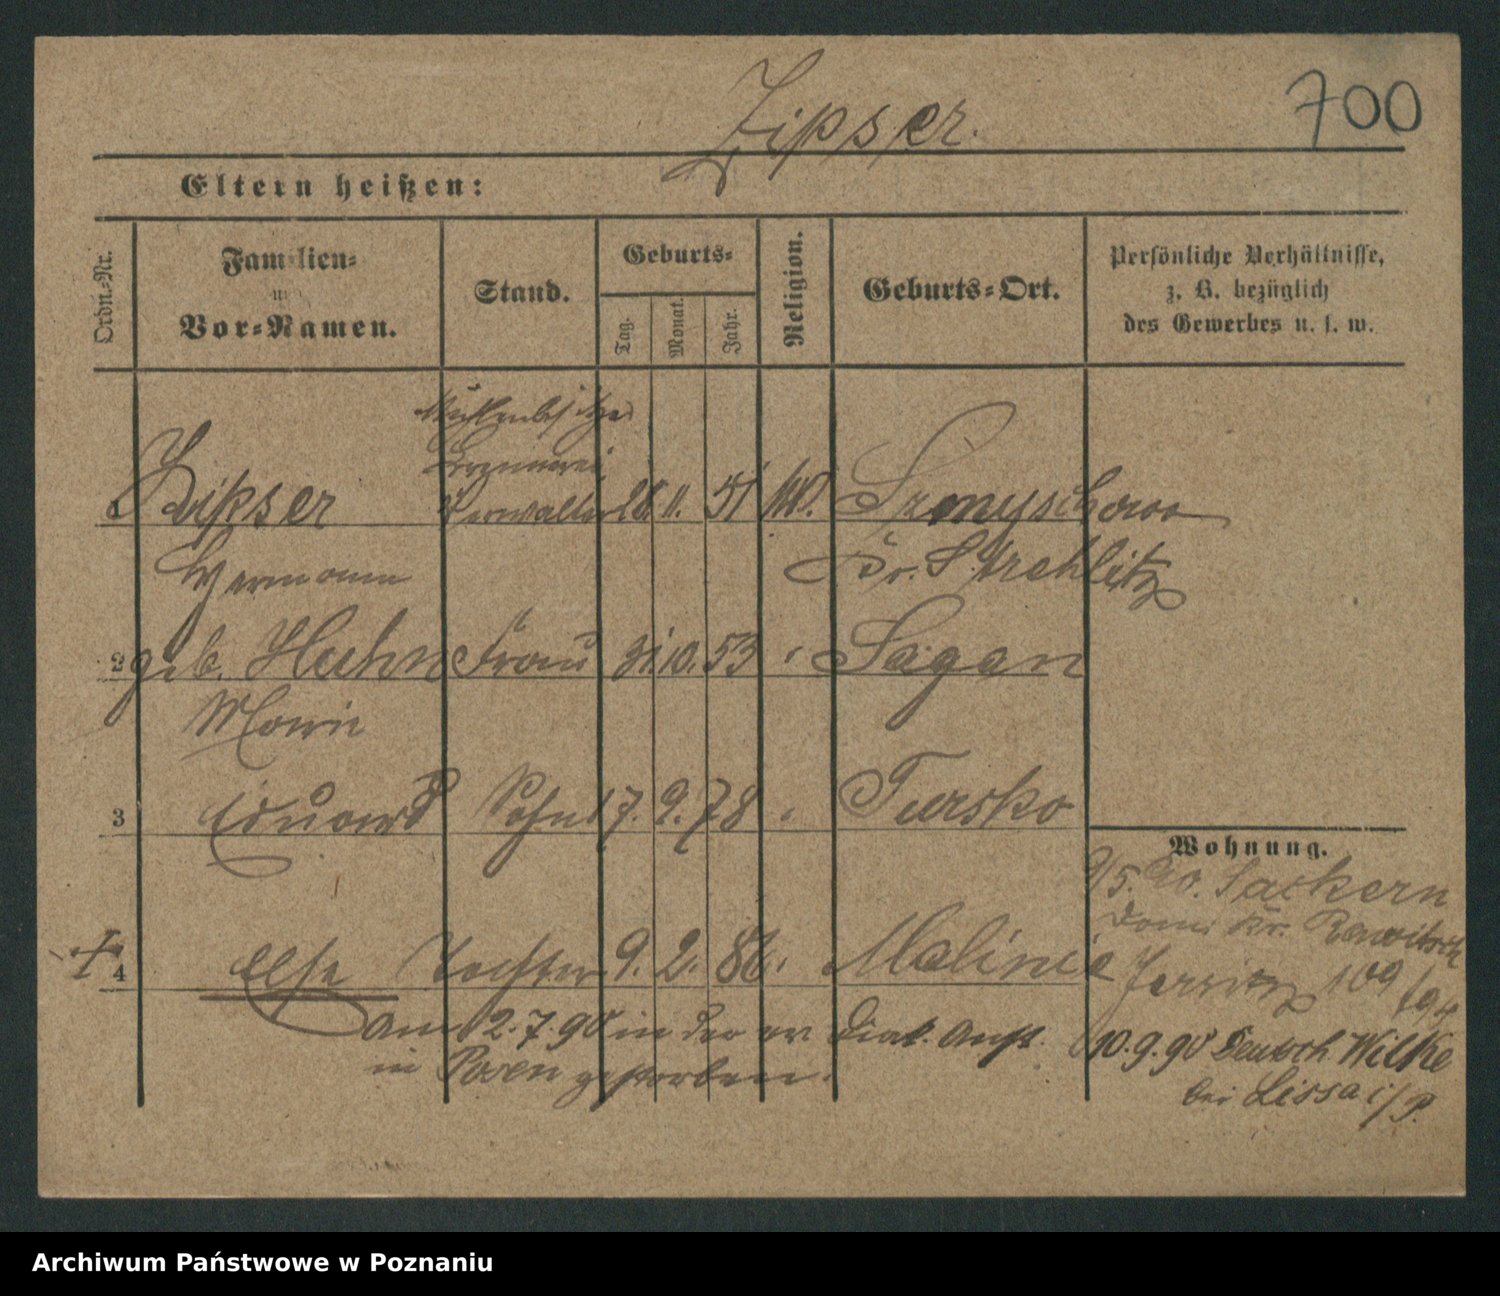 700
Zipser.
Eltern heißen:
Ordn.-Nr.
Familien-
und
Vor-Namen.
Stand.
Geburts-
Tag.
Monat.
Jahr.
Religion.
Geburts-Ort.
Persönliche Verhältnisse,
z. B. bezüglich
des Gewerbes u. s. w.
Mühlenbesitzer
Brennerei
Zipser Verwalter 28. 11. 51 kath. Szonyschowo
Hermann Kr. G. Strehlitz
2 geb. Huhn Frau 31. 10. 53 " Sagan
Marie
3 Eduard Sohn 17. 9. 78 " Tursko
Wohnung.
9/5. 90. Sackern
Dom. Kr. Rawitsch
4 Else Tochter 9. 2. 86. " Malinie
Jersitz 109
am 2.7.90 in der ev Diak. Anst.
in Posen gestorben.
10.9.90 Deutsch Wilke
bei Lissa i/P.
Archiwum Państwowe w Poznaniu